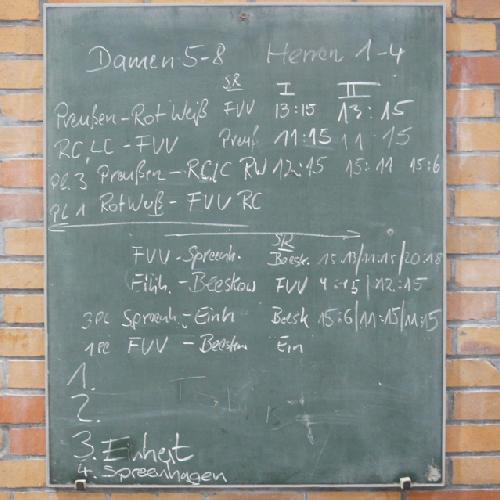 Damen 5-8 Herren 1-4
SR I II
Preußen - Rot Weiß FVV 13:15 13:15
RC LC - FVV Preuß 11:15 11 15
Pl. 3 Preußen - RC/C RW 12:15 15:11 15:6
Pl 1 Rot Weiß - FVV RC
SR
FVV - Spreenh. Beesk. 15 13/11:15/20:18
- Beeskow FVV 4:15 / 12:15
3 Pl Spreenh. - Einh Beesk 15:6/11:15/11:15
1 Pl FVV - Beeskow Ein
1.
2.
3. Einheit
4. Spreenhagen